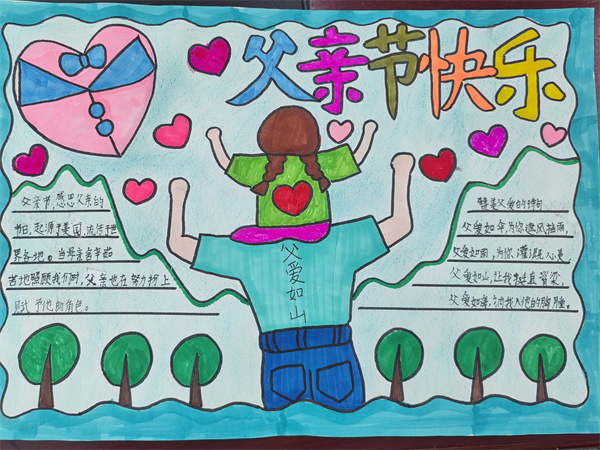 父亲节快乐
父爱如山
父亲节,感恩父亲的
节日,起源于美国,流传于世
界各地。当母亲含辛茹
苦地照顾我们时,父亲也在努力扮上
演 予他的角色。
赞美父爱的诗句
父爱如伞,为你遮风挡雨,
父爱如雨,为你濯洗心灵
父爱如山,让我挺直脊梁,
父爱如海,